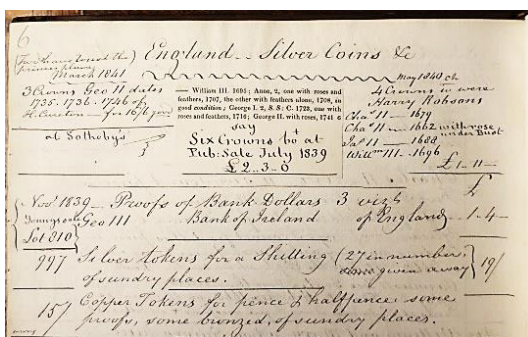 6
England - Silver Coins &c
March 1841
3 Crowns Geo II dates
1735. 1736. 1746 of
H. Curston - for 16/6 pr
at Sotheby's
— William III. 1695; Anne, 2, one with roses and
feathers, 1707, the other with feathers alone, 1708, in
good condition; George I. 2, S.S: C. 1723, one with
roses and feathers, 1716; George II. with roses, 1741 6
say
Six Crowns bt at
Pub: Sale July 1839
£2-3-6
May 1840
4 Crowns were
Harry Robsons
Chas II - 1679
Chas II - 1662 with rose under Bust
Jas II - 1688
Willm III - 1696
£1-11-
£
Novr 1839 - Proofs of Bank Dollars 3 vizt
Geo III Bank of Ireland of England - 1-4-
Lot 310
997 Silver tokens for a Shilling (27 in number, given away) 19/
of sundry places.
157 Copper Tokens for pence & halfpence some
proofs, some bronzed, of sundry places.